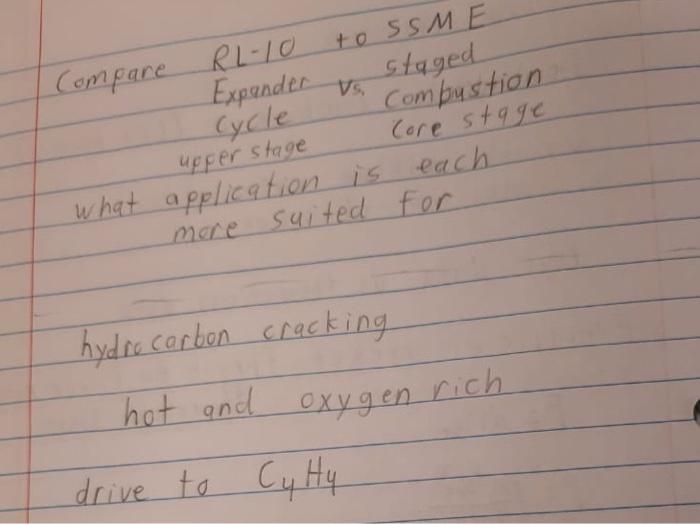 Compare RL-10 to SSME
Expander vs. staged
Cycle combustion
upper stage Core stage
what application is each
more suited for
hydrocarbon cracking
hot and oxygen rich
drive to CyHy